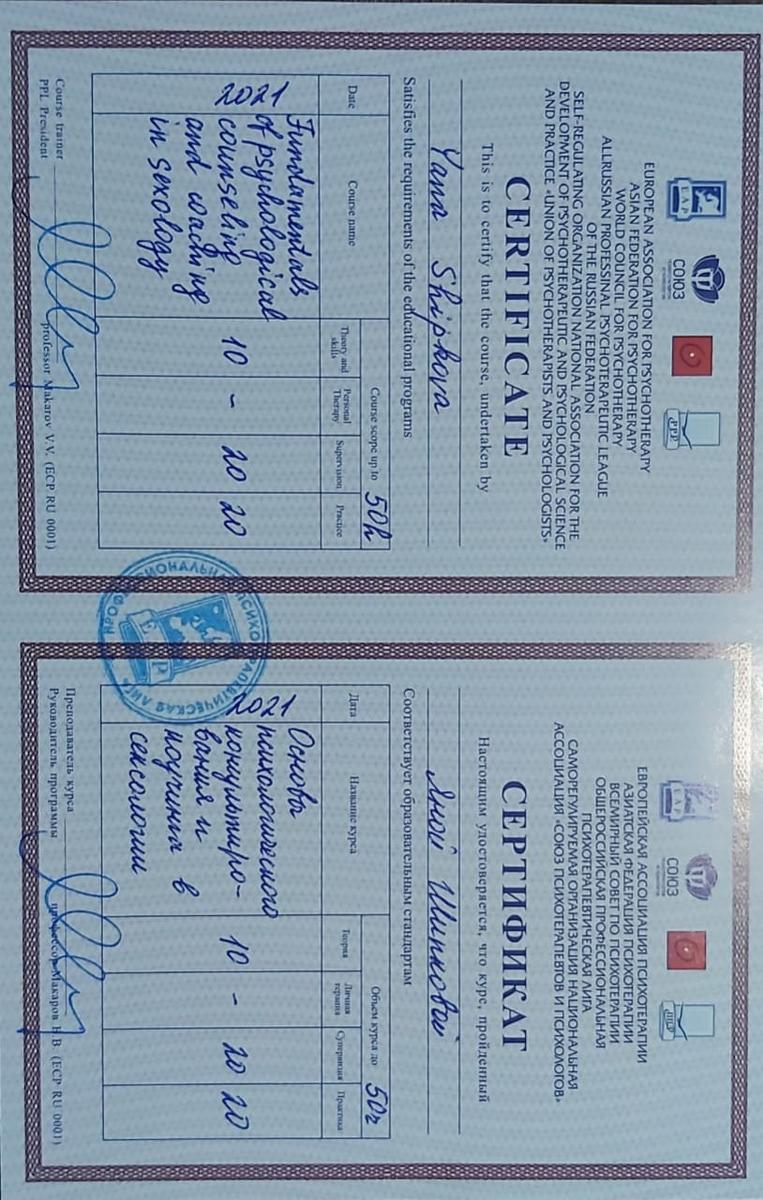 EAP
СОЮЗ
PPL
EUROPEAN ASSOCIATION FOR PSYCHOTHERAPY
ASIAN FEDERATION FOR PSYCHOTHERAPY
WORLD COUNCIL FOR PSYCHOTHERAPY
ALLRUSSIAN PROFESSINAL PSYCHOTERAPEUTIC LEAGUE
OF THE RUSSIAN FEDERATION
SELF-REGULATING ORGANIZATION NATIONAL ASSOCIATION FOR THE
DEVELOPMENT OF PSYCHOTHERAPEUTIC AND PSYCHOLOGICAL SCIENCE
AND PRACTICE «UNION OF PSYCHOTHERAPISTS AND PSYCHOLOGISTS»
CERTIFICATE
This is to certify that the course, undertaken by
Yana Shipkova
Satisfies the requirements of the educational programs
Date
Course name
Course scope up to 50h
Theory and skills
Personal Therapy
Supervision
Practice
2021
Fundamentals
of psychological
counseling
and coaching
in sexology
10
-
20
20
Course trainer
PPL President
professor Makarov V.V. (ECP RU 0001)
ПРОФЕССИОНАЛЬНАЯ ПСИХОТЕРАПЕВТИЧЕСКАЯ ЛИГА
EAP
EAP
СОЮЗ
ППЛ
ЕВРОПЕЙСКАЯ АССОЦИАЦИЯ ПСИХОТЕРАПИИ
АЗИАТСКАЯ ФЕДЕРАЦИЯ ПСИХОТЕРАПИИ
ВСЕМИРНЫЙ СОВЕТ ПО ПСИХОТЕРАПИИ
ОБЩЕРОССИЙСКАЯ ПРОФЕССИОНАЛЬНАЯ
ПСИХОТЕРАПЕВТИЧЕСКАЯ ЛИГА
САМОРЕГУЛИРУЕМАЯ ОРГАНИЗАЦИЯ НАЦИОНАЛЬНАЯ
АССОЦИАЦИЯ «СОЮЗ ПСИХОТЕРАПЕВТОВ И ПСИХОЛОГОВ»
СЕРТИФИКАТ
Настоящим удостоверяется, что курс, пройденный
Яной Шипковой
Соответствует образовательным стандартам
Дата
Название курса
Объем курса до 50ч
Теория
Личная терапия
Супервизия
Практика
2021
Основы
психологического
консультиро-
вания и
коучинга в
сексологии
10
-
20
20
Преподаватель курса
Руководитель программы
профессор Макаров В.В. (ECP RU 0001)